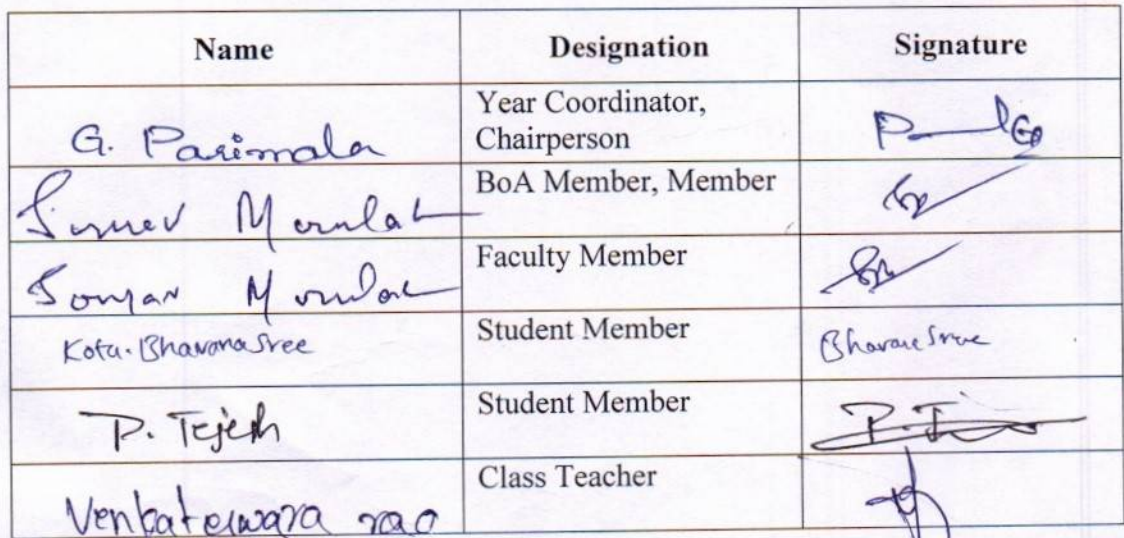 Name Designation Signature
G. Parimala Year Coordinator,
Chairperson
BoA Member, Member
Faculty Member
Kota. Bhavana Sree Student Member Bhavana Sree
P. Tejesh Student Member
Venkateswara rao Class Teacher